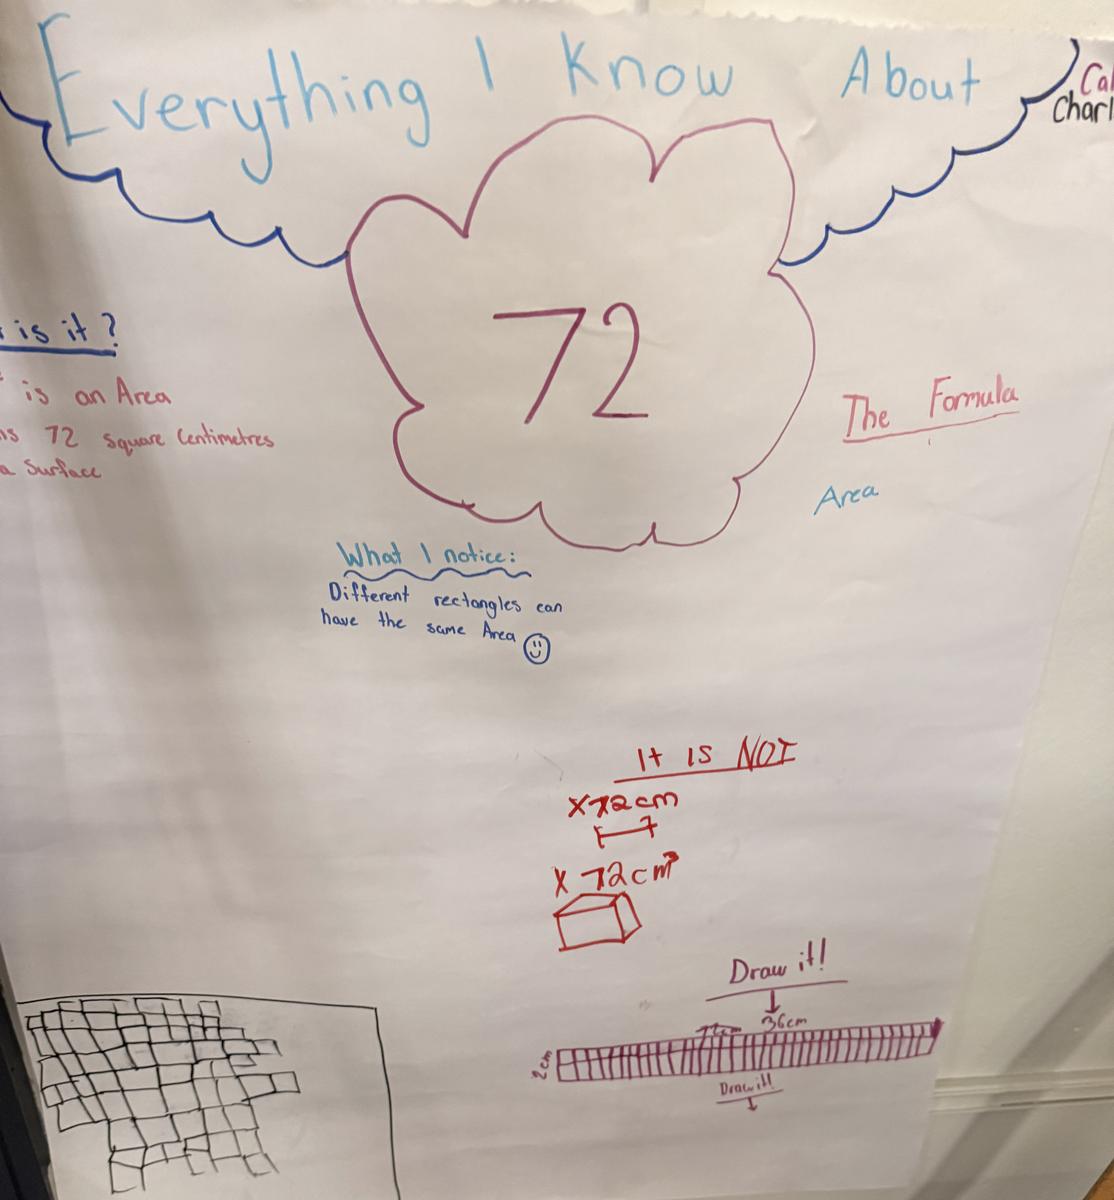 Everything I Know About
Cal
Charl
72
is it?
is an Area
72 square Centimetres
a Surface
The Formula
Area
What I notice:
Different rectangles can
have the same Area
It is NOT
X 72cm
X 72cm³
Draw it!
36cm
2cm
Draw it!